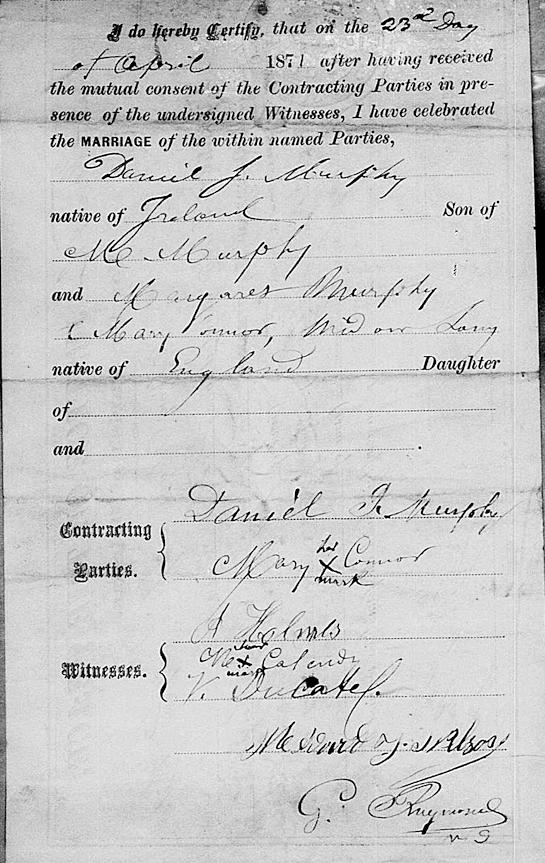 I do hereby Certify, that on the 23rd Day
of April 1871 after having received
the mutual consent of the Contracting Parties in pre-
sence of the undersigned Witnesses, I have celebrated
the MARRIAGE of the within named Parties,
Daniel J. Murphy
native of Ireland Son of
M Murphy
and Margaret Murphy
& Mary Connor, Widow Long
native of England Daughter
of
and
Daniel J. Murphy
Contracting Parties.
Mary her x mark Connor
J Holmes
Witnesses.
her x mark
V. Ducatel
G. Raymond
v g